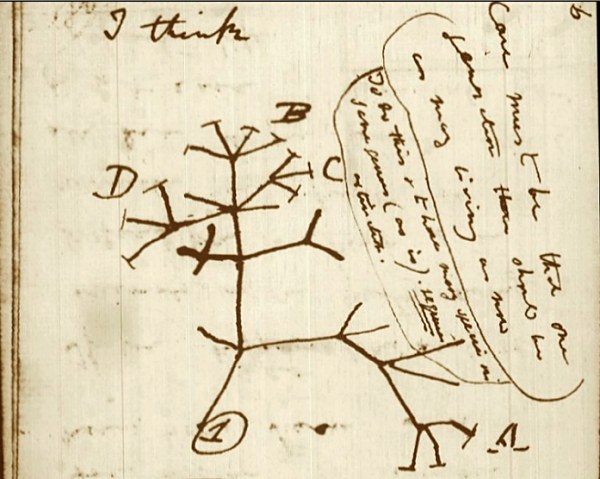 I think
Case must be that one
generation then should be
as many living as now
To do this & to have many species in
same genus (as is). requires
extinction.
B
C
D
A
1
6